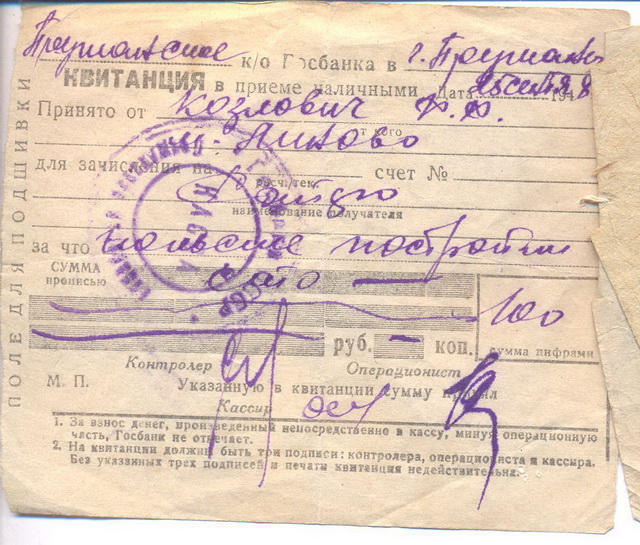 Пружанское к/о Госбанка в г. Пружаны
КВИТАНЦИЯ в приеме наличными Дата 25 сентя 1948
Принято от Козлович Ф. Ф.
от кого
для зачисления на расч/тек. счет №
наименование получателя
за что постройки
СУММА прописью сто —
100
руб. — коп. сумма цифрами
Контролер Операционист
М. П. Указанную в квитанции сумму принял
Кассир
1. За взнос денег, произведенный непосредственно в кассу, минуя операционную
часть, Госбанк не отвечает.
2. На квитанции должны быть три подписи: контролера, операциониста и кассира.
Без указанных трех подписей и печати квитанция недействительна.
ПОЛЕ ДЛЯ ПОДШИВКИ
КАССА
СССР